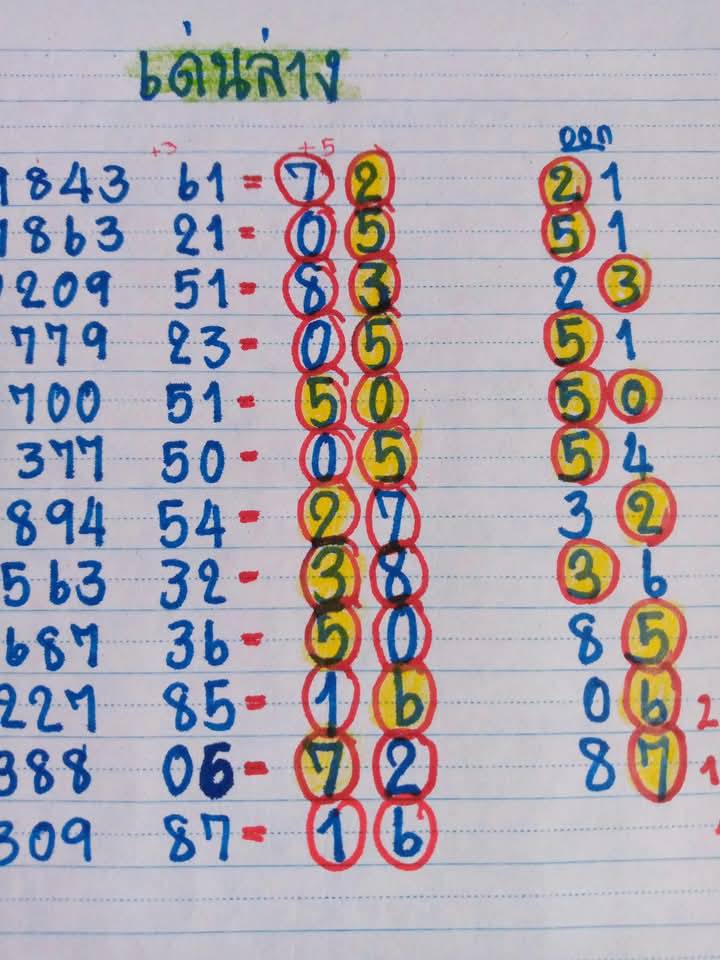 เด่นล่าง
+3 +5 ออก
1843 61 = 7 2 2 1
1863 21 = 0 5 5 1
209 51 = 8 3 2 3
779 23 = 0 5 5 1
700 51 = 5 0 5 0
377 50 = 0 5 5 4
894 54 = 2 7 3 2
563 32 = 3 8 3 6
687 36 = 5 0 8 5
227 85 = 1 6 0 6 2
388 06 = 7 2 8 7 1
309 87 = 1 6